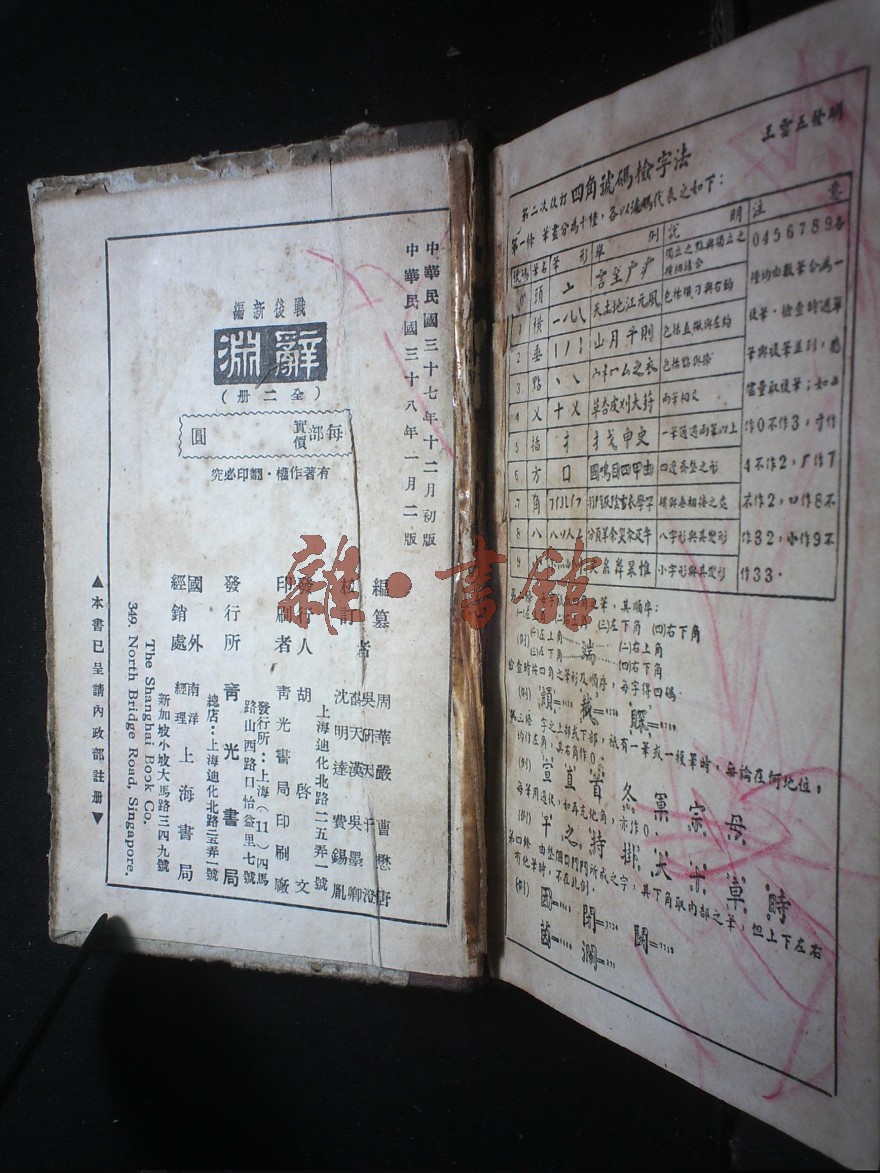 中華民國三十七年十二月初版
中華民國三十八年一月二版
戰後新編
辭淵
(全二冊)
每部實價 圓
有著作權・翻印必究
編纂者 周華嚴 曹懋唐
吳研天 千澄
校訂
沈明達 費錫胤
發行人 胡啓文
上海迪化北路二五弄一號
印刷者 青光書局印刷廠
發行所 青光書局
發行所:上海(11)四馬路山西路口怡益里七號
總店:上海迪化北路二五弄一號
國外經銷處 南洋經理 上海書局
新加坡小坡大馬路三四九號
The Shanghai Book Co.
349, North Bridge Road, Singapore,
▲本書已呈請內政部註冊▼
王雲五發明
第二次改訂四角號碼檢字法
第一條 筆畫分為十種,各以號碼代表之如下:
號碼 筆名 筆形 舉例 說明 注意
0 頭 亠 言主广疒 獨立之點與獨立之橫相結合
1 橫 天土地江元風 包括橫刁與右鈎
2 垂 山月千則 包括直撇與左鈎
3 點 包括點與捺
4 乂 十乂 草杏皮刈大葑 兩筆相交
5 插 扌 扌戈申史 一筆通過兩筆以上
6 方 口 國鳴目四甲由 四邊齊整之形
7 角 橫與垂相接之處
8 八 八字形與其變形
9 小 小字形與其變形
0456789各種均由數筆合為一複筆,檢查時遇單筆與複筆並列,應儘量取複筆;如
作0不作3,寸作4不作2,厂作7不作2,作8不作32,小作9不作33.
第二條 每字只取四角之筆,其順序:
(一)左上角 (二)右上角 (三)左下角 (四)右下角
(例)
(一)左上角 端 (二)右上角
(三)左下角 (四)右下角
檢查時按四角之筆形及順序,每字得四碼:
(例) 顏 截
第三條 字之上部或下部,祇有一筆或一複筆時,無論在何地位,
均作左角,其右角作0.
(例) 宣 直 首 冬 宗 母
每筆用過後,如再充他角,亦作0.
(例) 干 之 持 掛 大 十 車 時
第四條 由整個囗門鬥所成之字,其下角取內部之筆,但上下左右
有他筆時,不在此例.
(例) 因 閉 鬭
菌 瀾
雜・書館